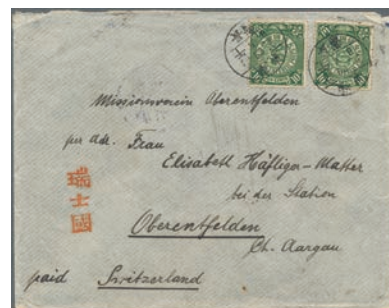 Missionsverein Oberentfelden
per Adr. Frau
Elisabeth Häfliger-Matter
bei der Station
Oberentfelden
Ct. Aargau
瑞士國
paid Switzerland